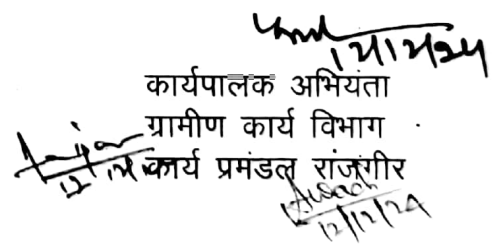 12/12/24
कार्यपालक अभियंता
ग्रामीण कार्य विभाग
कार्य प्रमंडल राजगीर
12/12/24